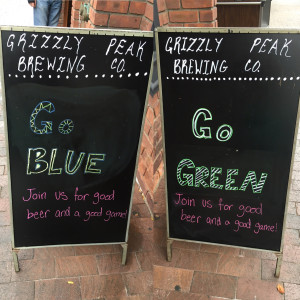 GRIZZLY PEAK
BREWING CO.
Go
BLUE
Join us for good
beer and a good game!
GRIZZLY PEAK
BREWING CO.
Go
GREEN
Join us for good
beer and a good game!